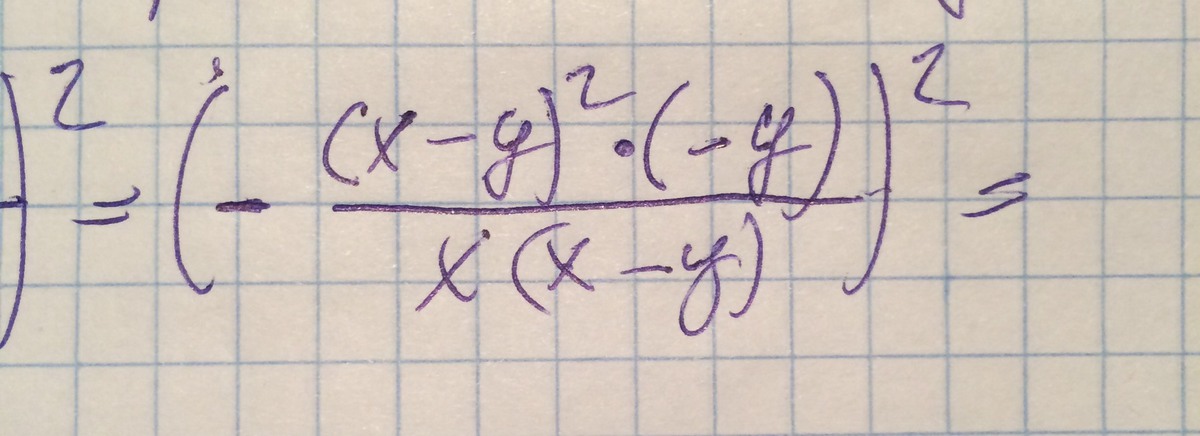 )² = (- (x-y)²·(-y) / x(x-y))² =